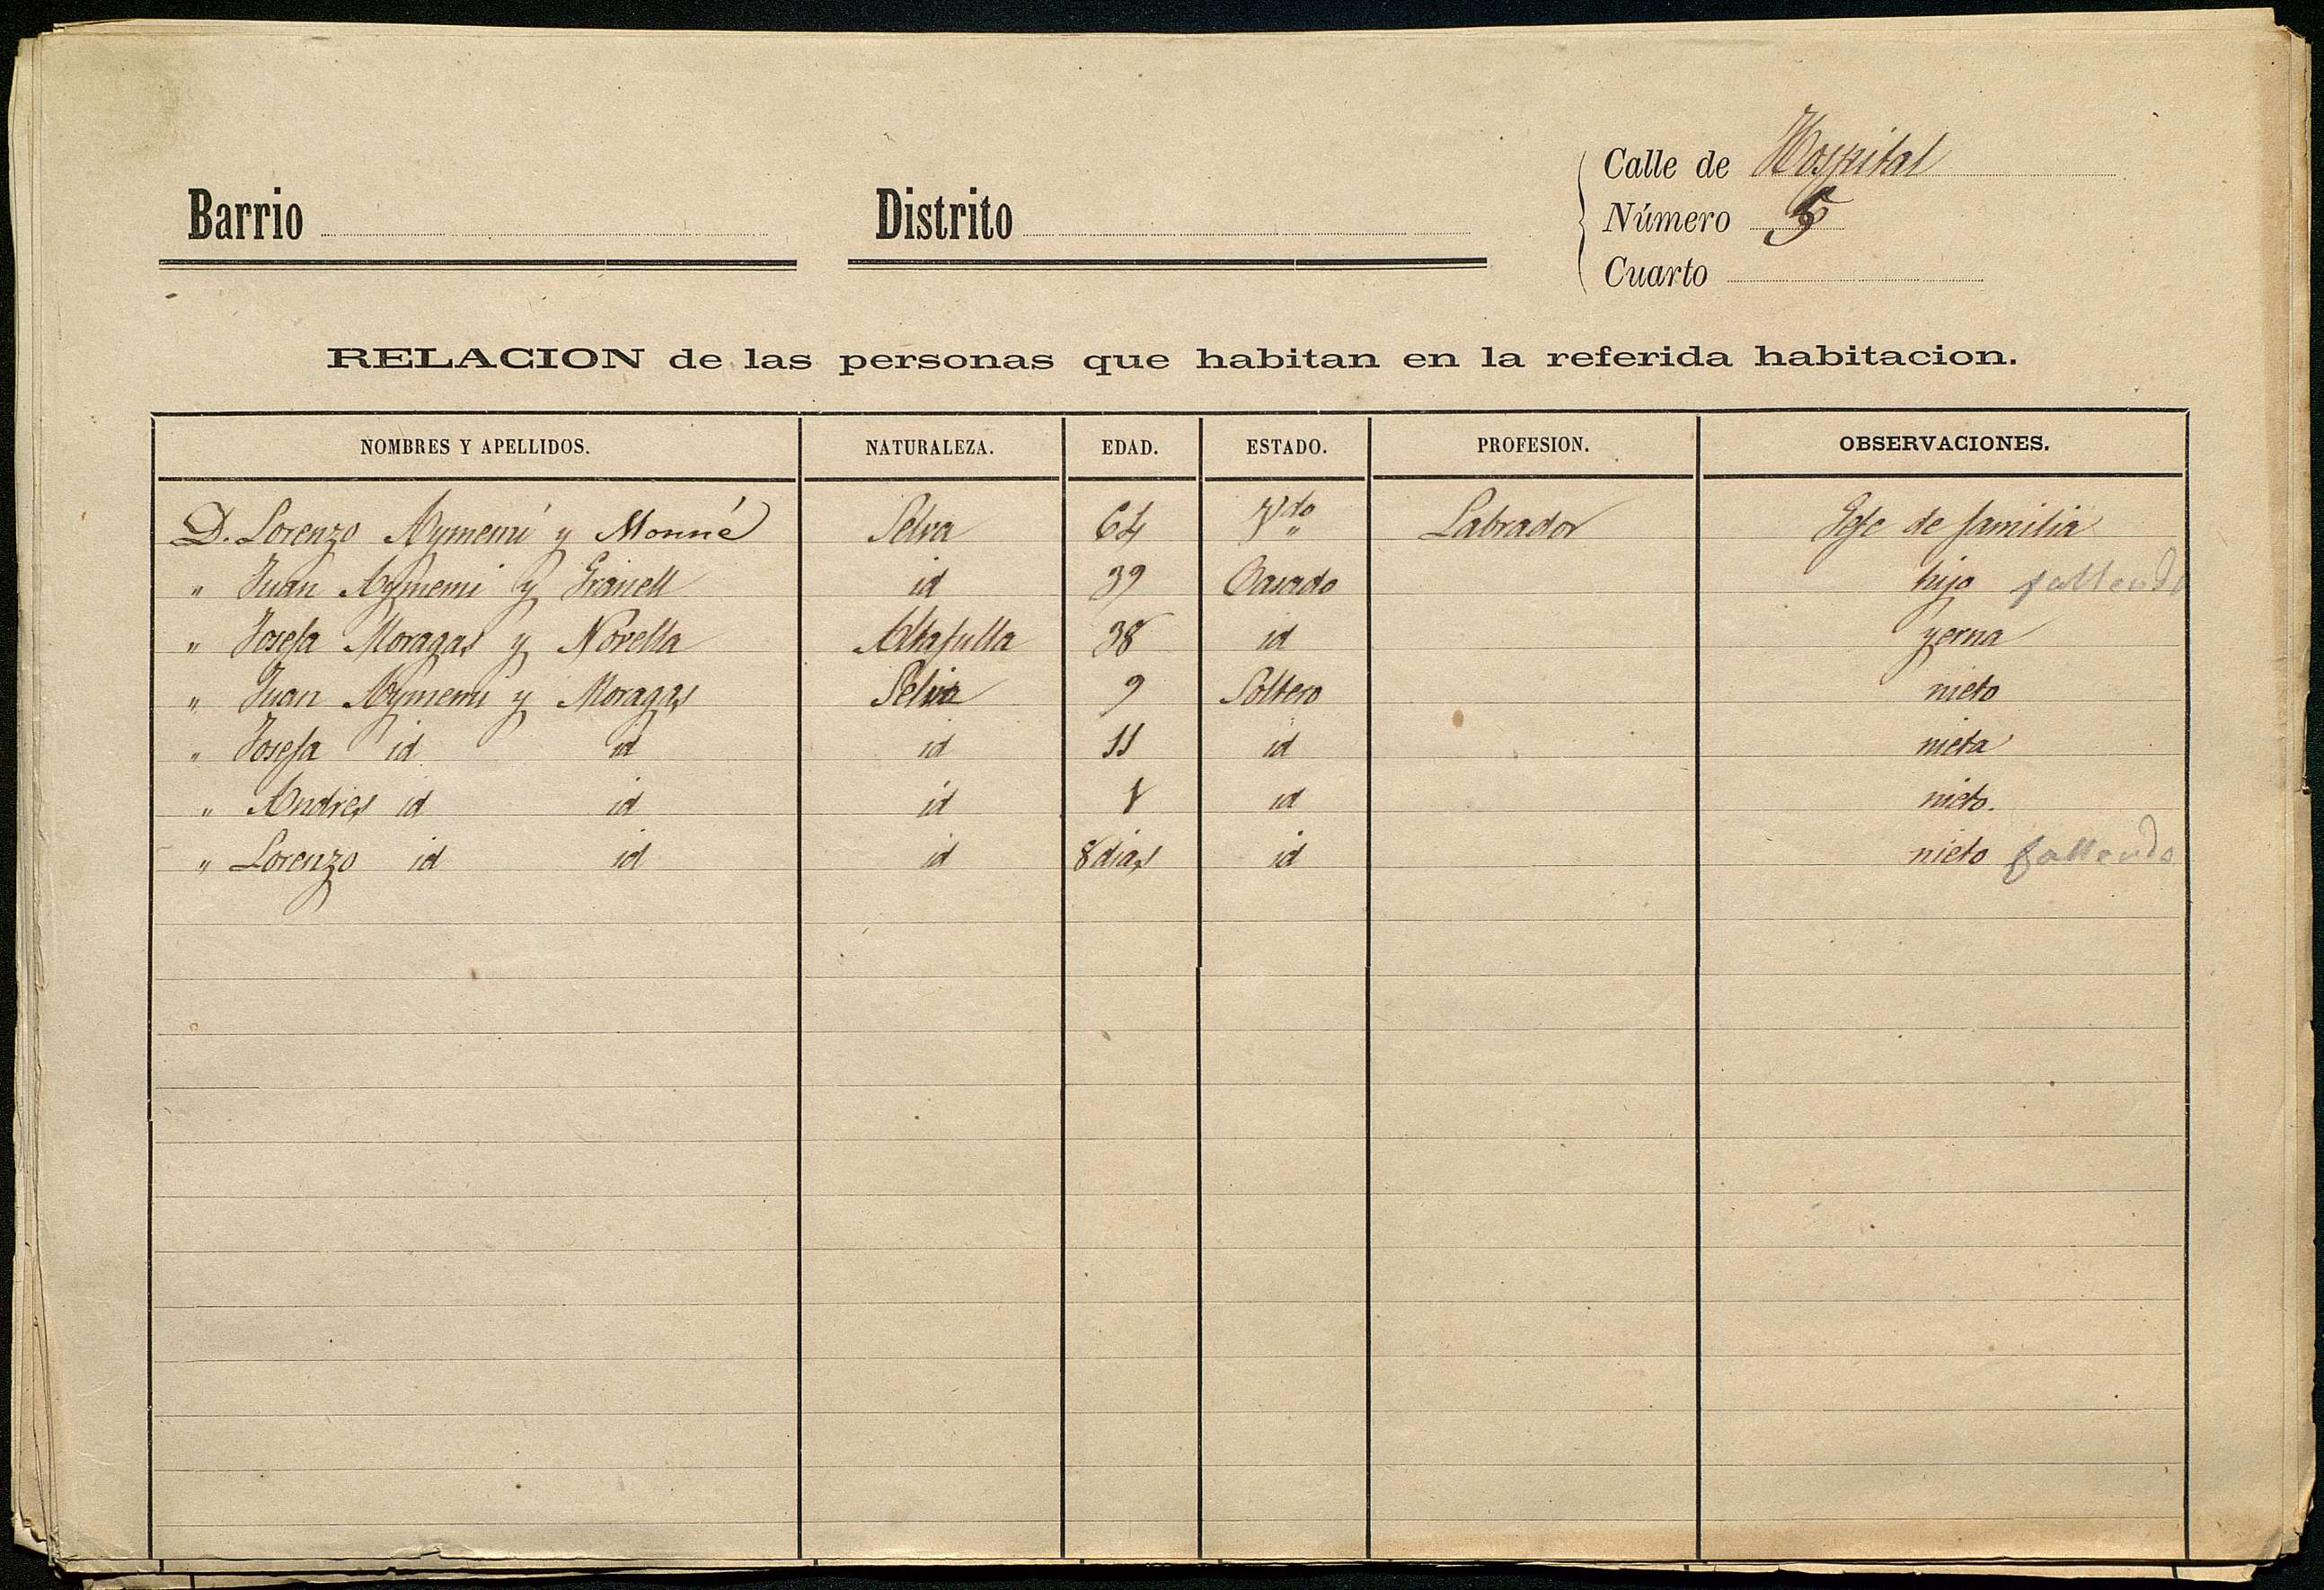 Calle de Hospital
Barrio Distrito Número 5
Cuarto
RELACION de las personas que habitan en la referida habitacion.
NOMBRES Y APELLIDOS. NATURALEZA. EDAD. ESTADO. PROFESION. OBSERVACIONES.
D. Lorenzo Aymemí y Monné Selva 64 Vdo Labrador Gefe de familia
" Juan Aymemi y Granell id 39 Casado hijo fallecido
" Josefa Moragas y Novella Altafulla 38 id yerna
" Juan Aymemi y Moragas Selva 9 Soltero nieto
" Josefa id id id 11 id nieta
" Andres id id id 1 id nieto.
" Lorenzo id id id 8 dias id nieto fallecido